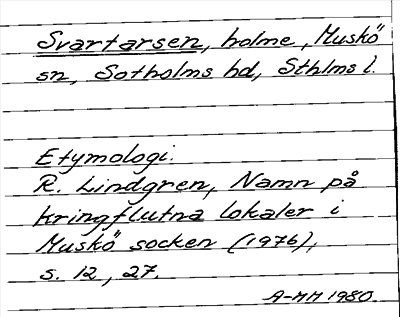 Svartarsen, holme, Muskö
sn, Sotholms hd, Sthlms l.
Etymologi.
R. Lindgren, Namn på
kringflutna lokaler i
Muskö socken (1976),
s. 12, 27.
A-MH 1980.